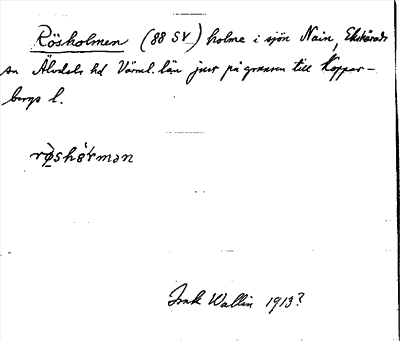 Rösholmen (88 SV) holme i sjön Nain, Ekshärads
sn Älvdals hd Värml. län just på gränsen till Koppar-
bergs l.
Isak Wallin 1913?